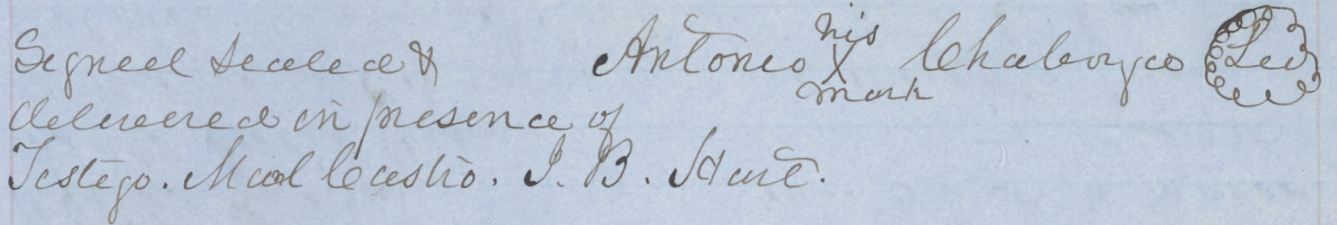 Signed Sealed & Antonio his X mark Chaboyco LS
delivered in presence of
Testego. Maal Castro. I. B. Hart.